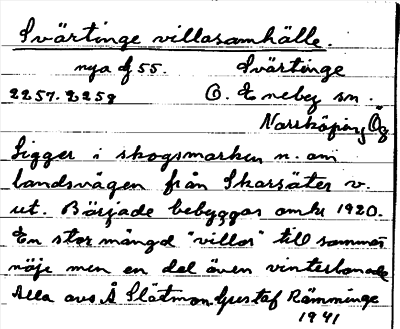 Svärtinge villasamhälle.
nya f 55. Svärtinge
2257. 2258 Ö. Eneby sn.
Norrköping Ög
Ligger i skogsmarken n. om
landsvägen från Skarsäter v.
ut. Började bebyggas omkr 1920.
En stor mängd "villor" till sommar
nöje men en del även vinterbonade
Alla avs. Å Slätmon Gustaf Rämminge
1941